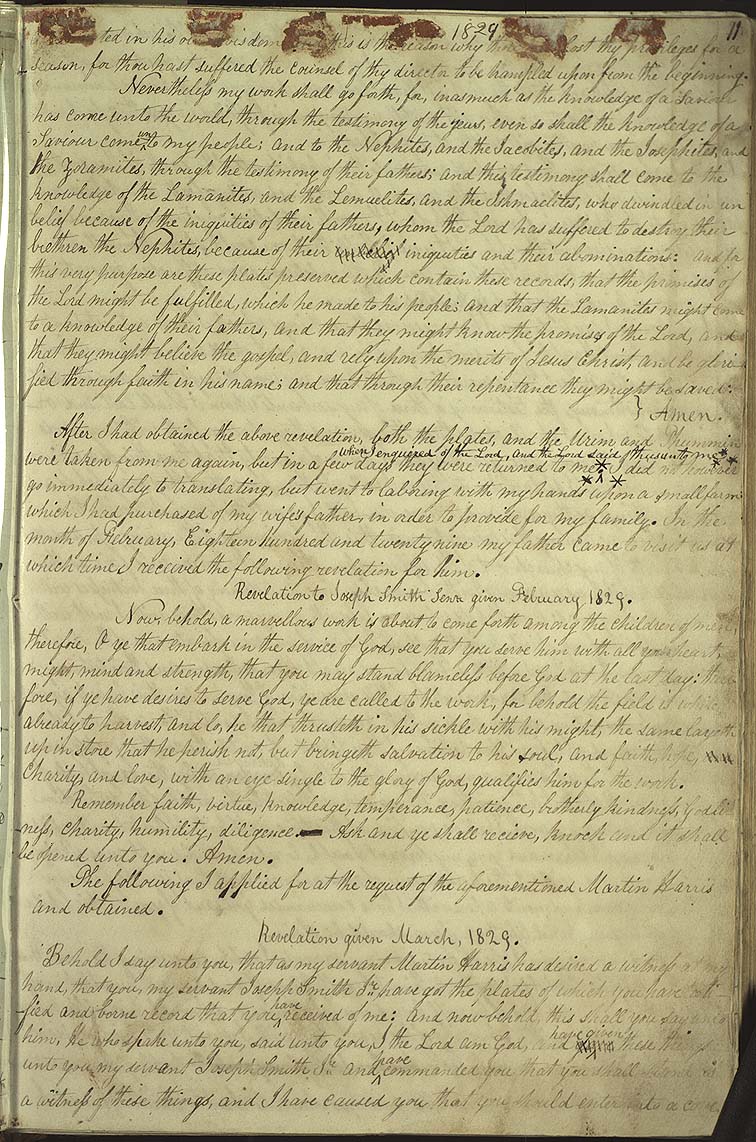 1829 11
ted in his own wisdom this is the reason why thou lost thy privileges for a
season, for thou hast suffered the counsel of thy director to be trampled upon from the beginning.
Nevertheless my work shall go forth, for, inasmuch as the knowledge of a Saviour
has come unto the world, through the testimony of the jews, even so shall the knowledge of a
Saviour come unto my people; and to the Nephites, and the Jacobites, and the Josephites, and
the Zoramites, through the testimony of their fathers; and this testimony shall come to the
knowledge of the Lamanites, and the Lemuelites, and the Ishmaelites, who dwindled in un
belief because of the iniquities of their fathers, whom the Lord has suffered to destroy their
brethren the Nephites, because of their iniquities and their abominations: and for
this very purpose are these plates preserved which contain these records, that the promises of
the Lord might be fulfilled, which he made to his people; and that the Lamanites might come
to a knowledge of their fathers, and that they might know the promises of the Lord, and
that they might believe the gospel, and rely upon the merits of Jesus Christ, and be glori-
fied through faith in his name; and that through their repentance they might be saved:
} Amen.
After I had obtained the above revelation, both the plates, and the Urim and Thummim
when I enquired of the Lord, and the Lord said thus unto me
were taken from me again, but in a few days they were returned to me * I did not however
go immediately to translating, but went to laboring with my hands upon a small farm
which I had purchased of my wife's father, in order to provide for my family. In the
month of February, Eighteen hundred and twenty nine my father came to visit us at
which time I received the following revelation for him.
Revelation to Joseph Smith Senr given February 1829.
Now, behold, a marvellous work is about to come forth among the children of men,
therefore, O ye that embark in the service of God, see that you serve him with all your heart,
might, mind and strength, that you may stand blameless before God at the last day: there
fore, if ye have desires to serve God, ye are called to the work, for behold the field is white
already to harvest, and lo, he that thrusteth in his sickle with his might, the same layeth
up in store that he perish not, but bringeth salvation to his soul, and faith, hope,
Charity, and love, with an eye single to the glory of God, qualifies him for the work.
Remember faith, virtue, knowledge, temperance, patience, brotherly kindness, Godli
ness, charity, humility, diligence. — Ask and ye shall recieve, knock and it shall
be opened unto you. Amen.
The following I applied for at the request of the aforementioned Martin Harris
and obtained.
Revelation given March, 1829.
Behold I say unto you, that as my servant Martin Harris has desired a witness at my
hand, that you, my servant Joseph Smith Jr. have got the plates of which you have testi
fied and borne record that you have received of me: and now behold, this shall you say unto
him, he who spake unto you, said unto you, I the Lord am God, and have given these things
unto you my servant Joseph Smith Jr. and have commanded you that you shall stand as
a witness of these things, and I have caused you that you should enter into a cove